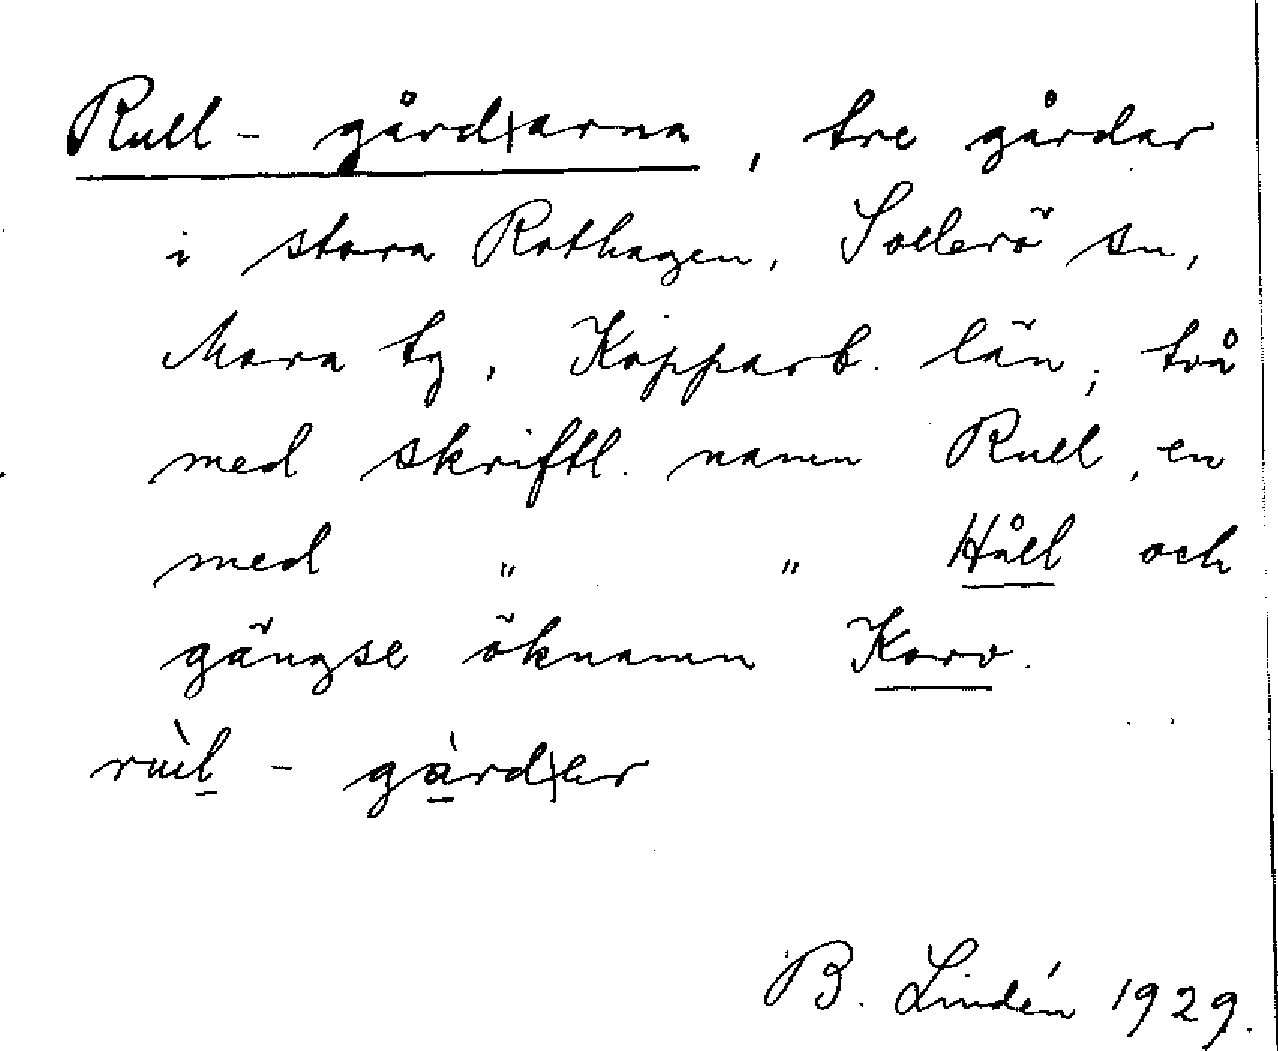 Rull-gård|arna, tre gårdar
i stora Rothagen, Sollerö sn,
Mora tg, Kopparb. län, två
med skriftl. namn Rull, en
med " " Håll och
gängse öknamn Korv.
rùl - gàrd|er
B. Lindén 1929.